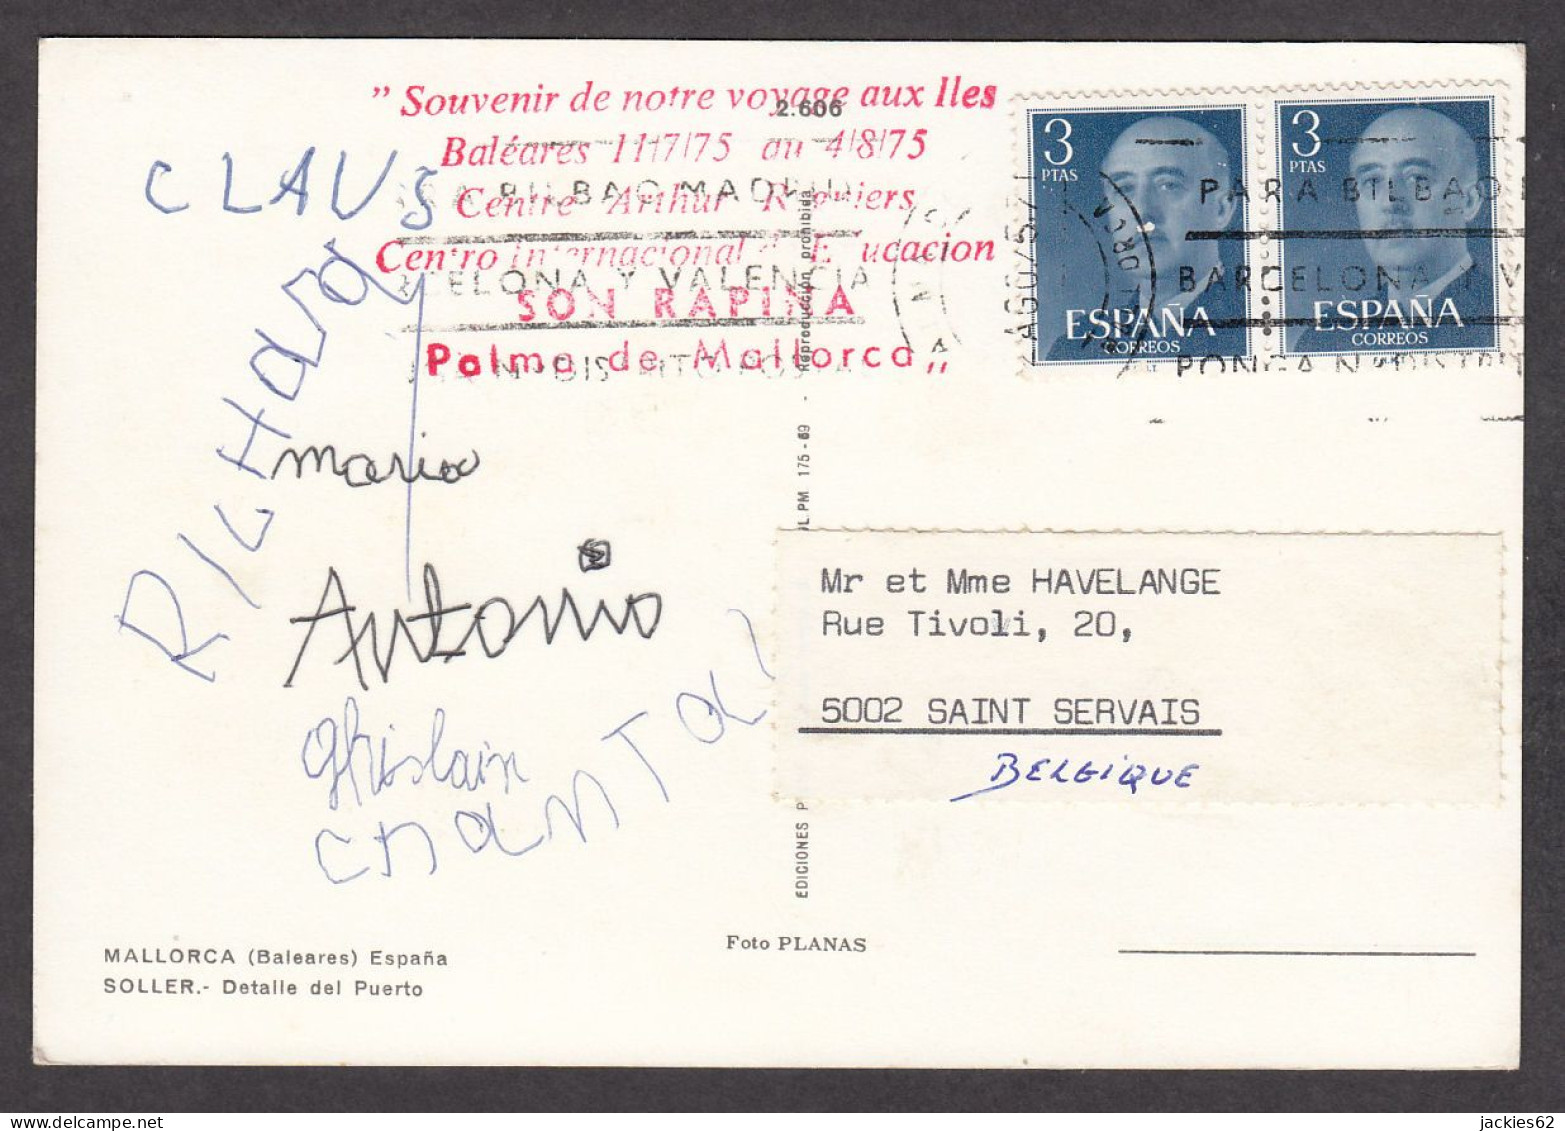 " Souvenir de notre voyage aux Iles
Baléares 11/7/75 au 4/8/75
Centre Arthur
Centro Internacional de Educacion
SON RAPIÑA
Palma de Mallorca "
2.606
3
PTAS
ESPAÑA
CORREOS
3
PTAS
ESPAÑA
CORREOS
PARA BILBAO MADRID
BARCELONA Y VALENCIA
PONGA Nº DISTRITO POSTAL
PARA BILBAO
BARCELONA Y V
PONGA Nº DISTRIT
CLAUS
RICHARD
maria
Antonio
Ghislain
CHANTAL
Mr et Mme HAVELANGE
Rue Tivoli, 20,
5002 SAINT SERVAIS
BELGIQUE
EDICIONES P
L.PM 175-69 - Reproducción prohibida
MALLORCA (Baleares) España
SOLLER.- Detalle del Puerto
Foto PLANAS
jackies62